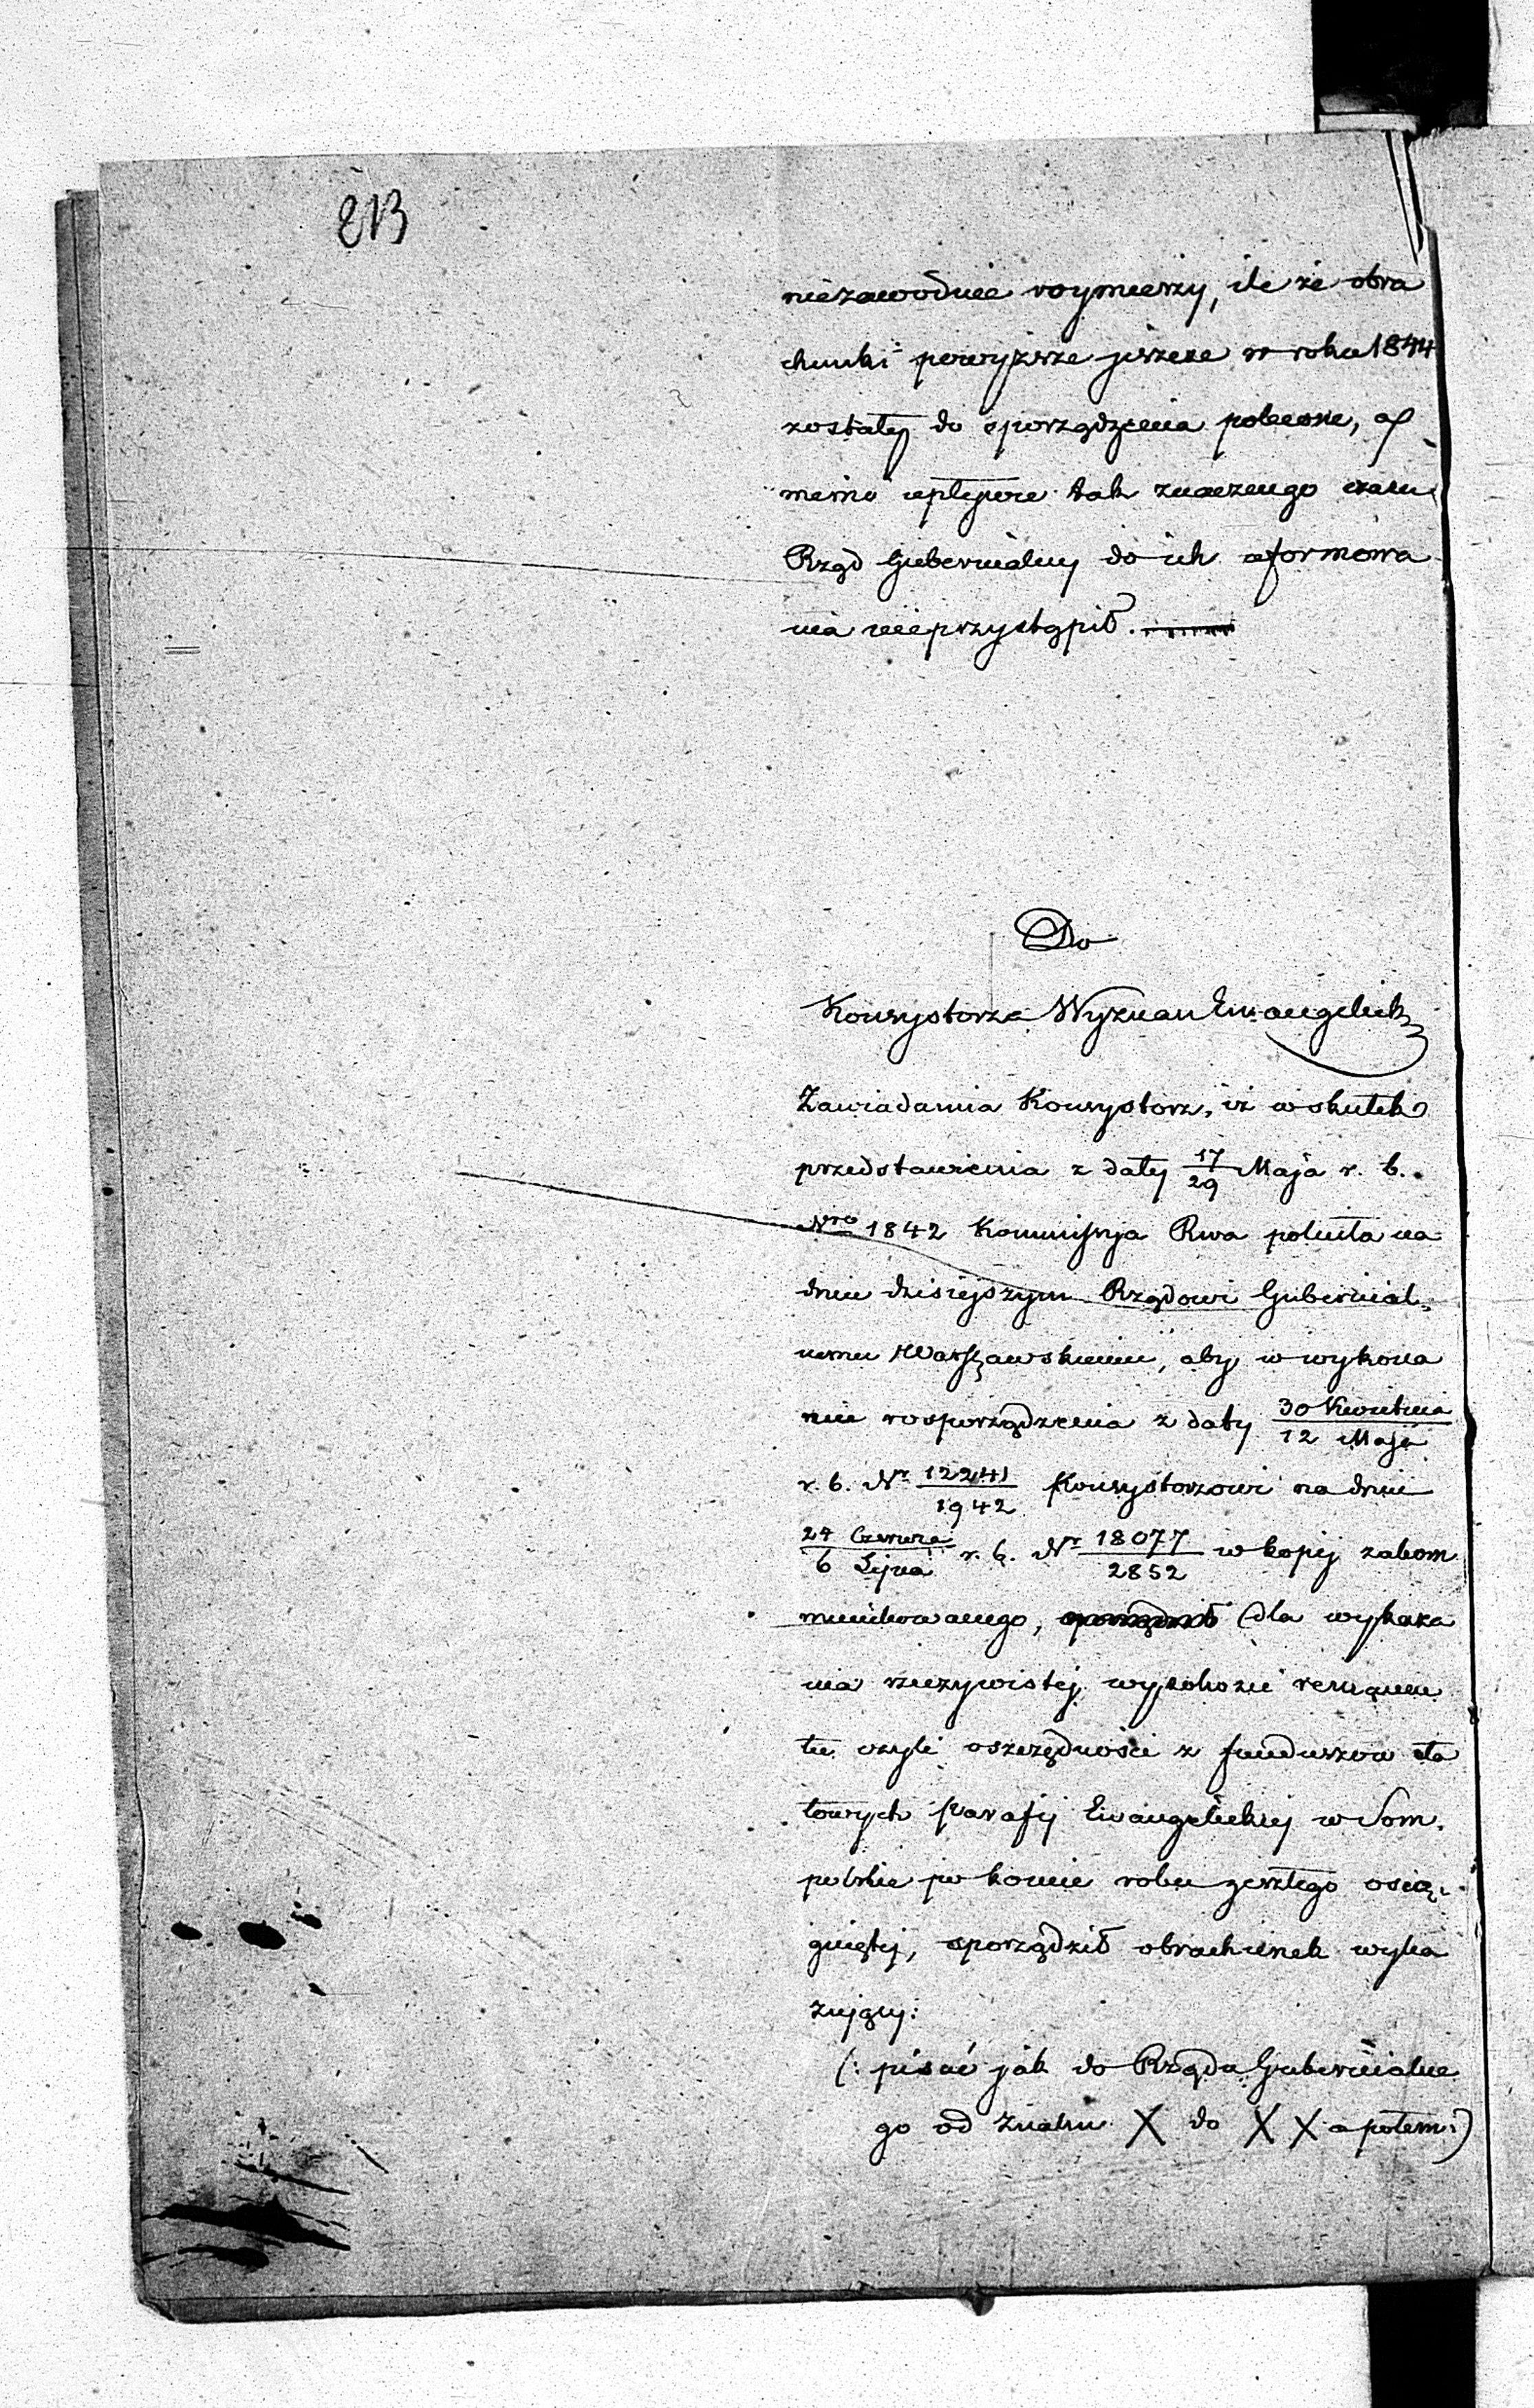 213
niezawodnie wymierzy, ile że obra
chunki powyższe jeszcze w roku 1844
zostały do sporządzenia polecone, a
mimo upływu tak znacznego czasu
Rząd Gubernialny do ich uformowa
nia nieprzystąpił.
Do
Konsystorza Wyznań Ewangelick
Zawiadamia Konsystorz, iż wskutek
przedstawienia z daty 17/29 Maja r. b.
Nro 1842 Kommissya Rwa poleciła na
dniu dzisiejszym Rządowi Gubernial,
nemu Warszawskiemu, aby w wykona
niu rosporządzenia z daty 30 Kwietnia/12 Maja
r. b. Nr 12241/1942 Konsystorzowi na dniu
24 Czerwca/6 Lipca r. b. Nr 18077/2852 w kopij zakom
munikowanego, (dla wykaza
nia rzeczywistej wysokości remanen
tu czyli oszczędności z funduszów eta
towych Parafij Ewangelickiej w Som,
polnie po koniec roku zeszłego osią,
gniętej, sporządził obrachunek wyka
zujący:
(: pisać jak do Rządu Gubernialne
go od znaku X do X X a potem:)